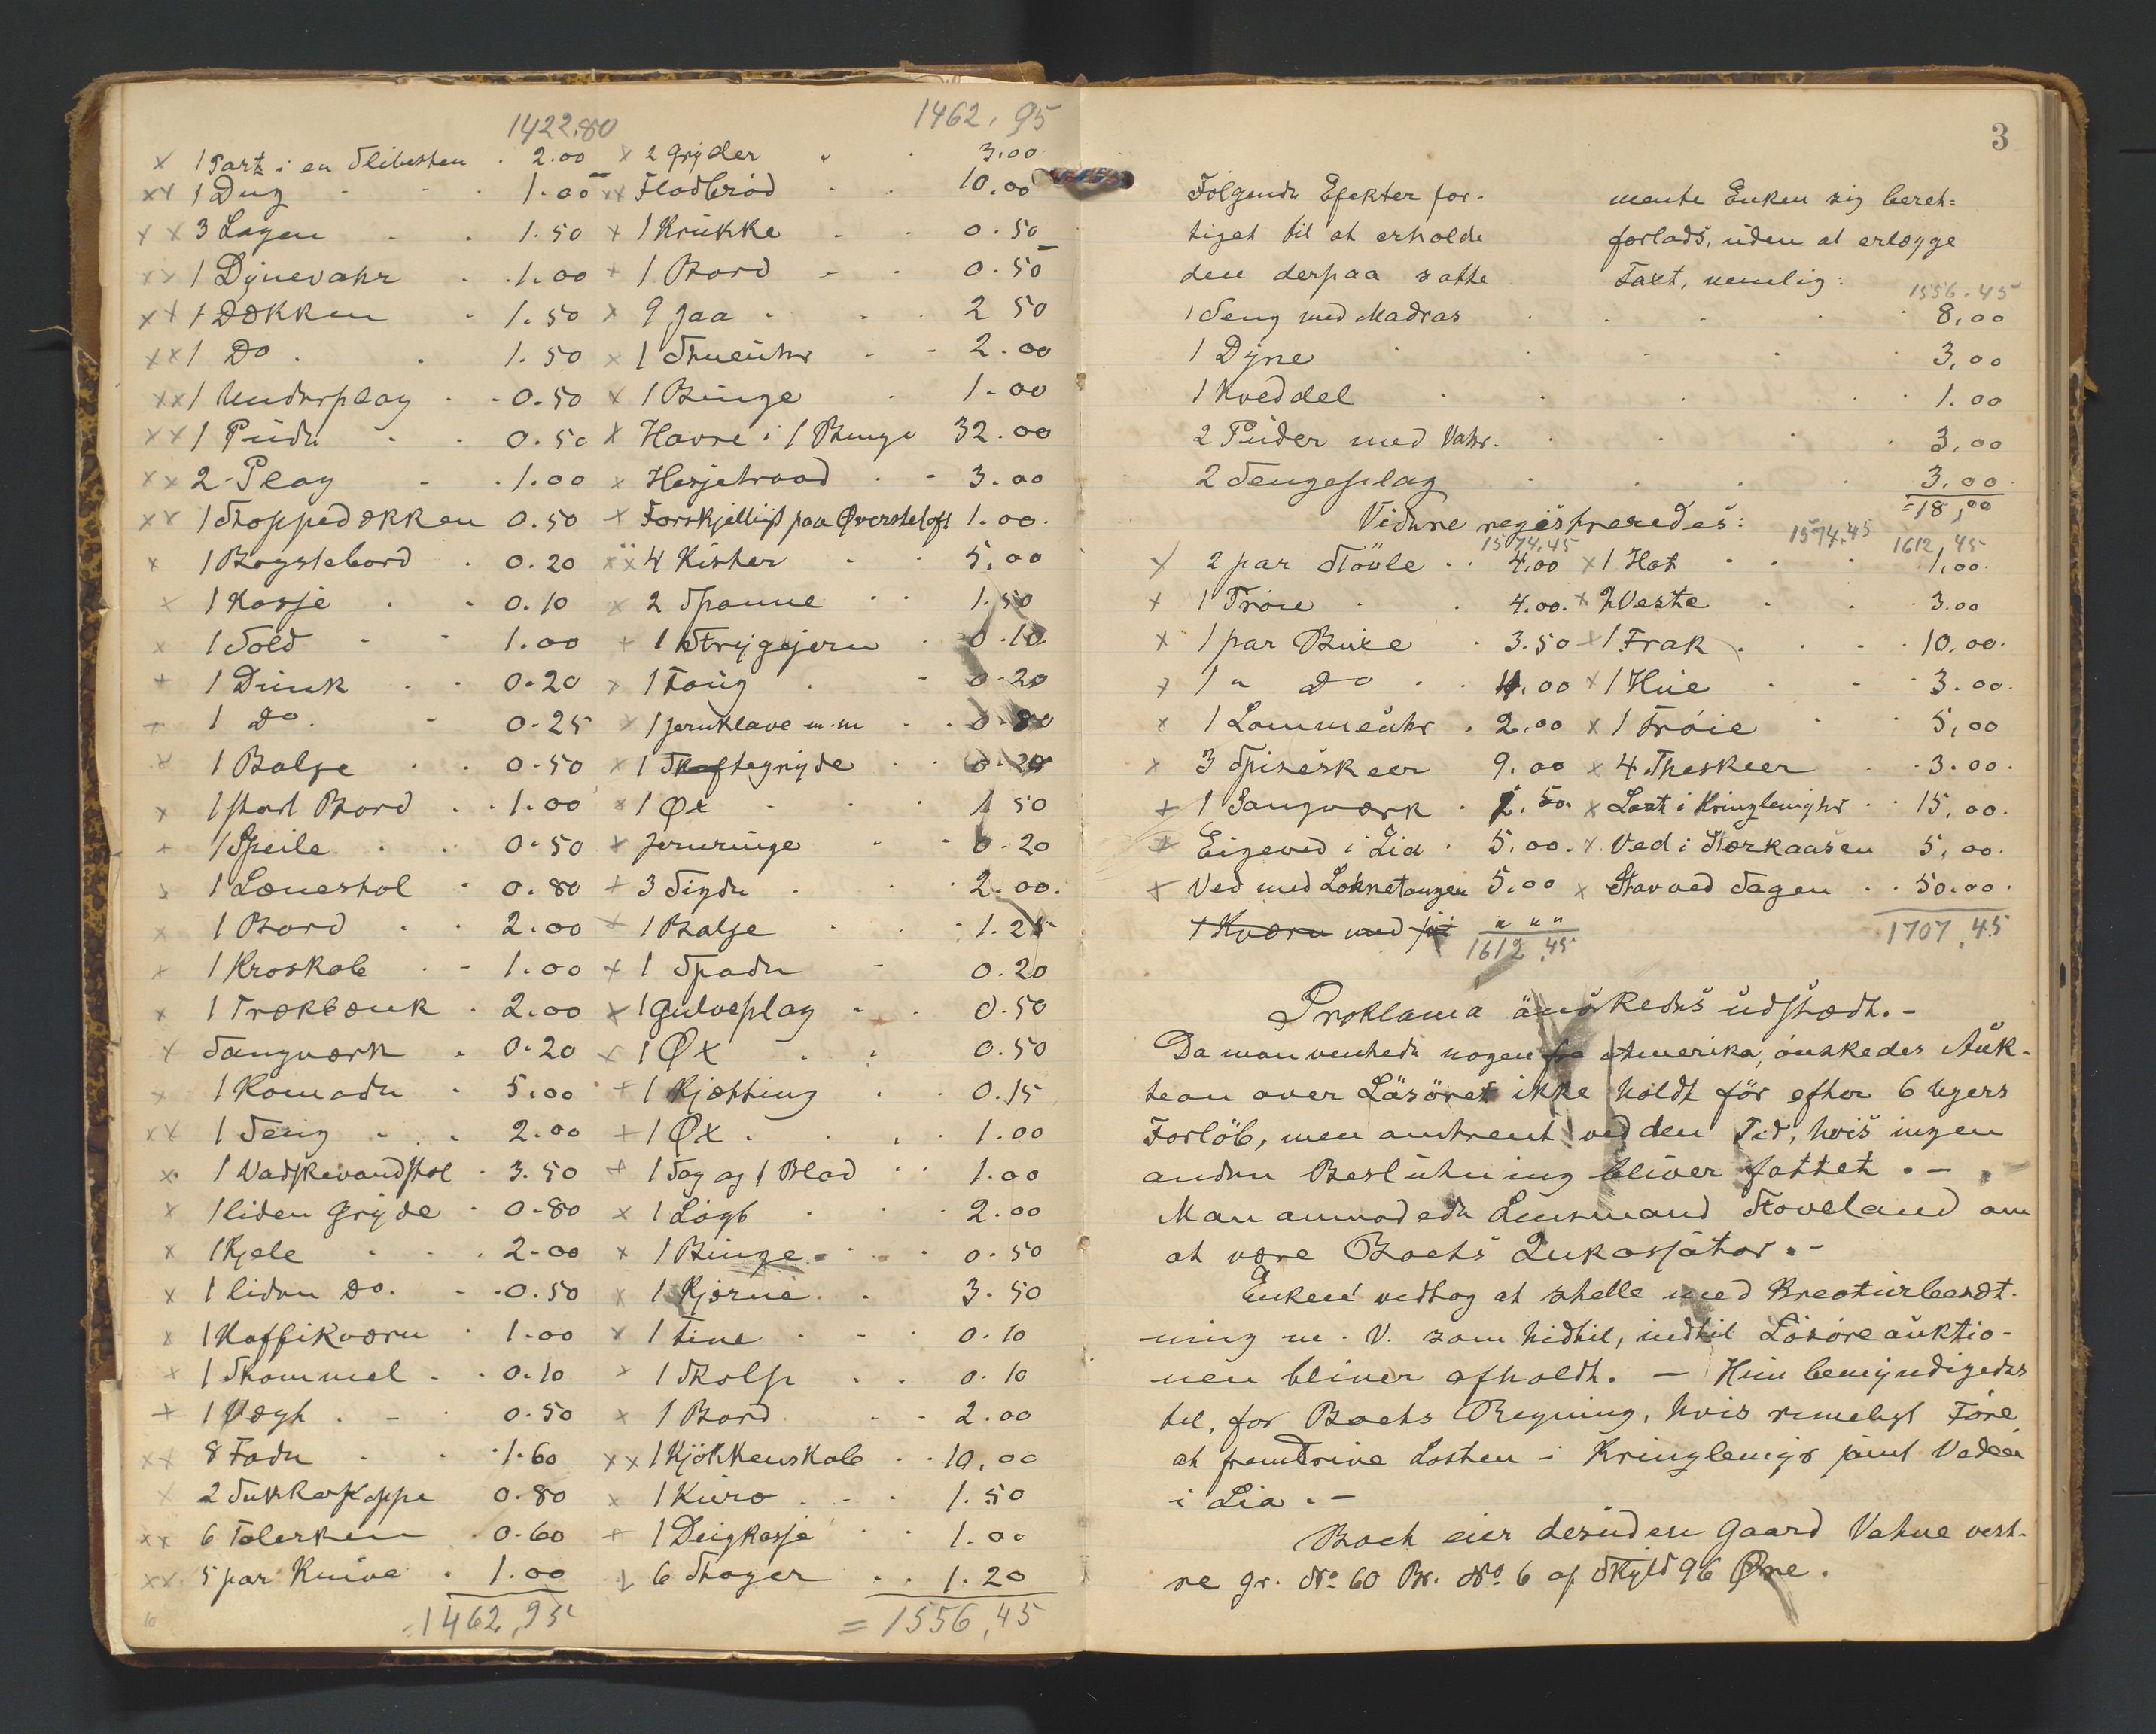 1422.80
x 1 Part i en Slibesten . 2.00
xx 1 Dug . 1.00
xx 3 Lagen . . 1.50
xx 1 Dynevahr . 1.00
xx 1 Dækken . 1.50
xx 1 Do . . 1.50
xx 1 Underplag . . 0.50
xx 1 Pude . . 0.50
xx 2 Plag . . 1.00
xx 1 Stoppedækken 0.50
x 1 Bagstebord . 0.20
x 1 Kasje . . 0.10
x 1 Sold . . 1.00
+ 1 Dunk . . 0.20
+ 1 Do. . 0.25
x 1 Balje . . 0.50
x 1 stort Bord . . 1.00
+ 1 Speile . . 0.50
x 1 Lænestol . 0.80
x 1 Bord . . 2.00
x 1 Kroskab . . 1.00
x 1 Trækbænk . 2.00
x Sangværk . 0.20
x 1 Komode . 5.00
xx 1 Seng . . . 2.00
x 1 Vadskevandstol . 3.50
x 1 liden Gryde . 0.80
x 1 Kjele . . . 2.00
x 1 liden Do. . . 0.50
x 1 Kaffikværn . 1.00
+ 1 Skammel . . 0.10
+ 1 Vægt . . . 0.50
xx 8 Fade . . 1.60
x 2 Sukkerkoppe 0.80
xx 6 Talerken . 0.60
xx 5 par Knive . 1.00
1462,95
1462,95
x 2 Gryder . . 3.00
xx Fladbröd . . 10.00
+ 1 Krukke . . 0.50
+ 1 Bord . . 0.50
x 9 Jaa . . . 2 50
x 1 Stueuhr . . 2.00
x 1 Binge . 1.00
x Havre i 1 Binge 32.00
x Hesjetraad . . 3.00
+ Forskjelligt paa Øversteloft 1.00.
xx 4 Kister . . 5,00
x 2 Spanne . . 1.50
+ 1 Strygejern . 0.10
x 1 Taug . . 0.20
x 1 Jernklave m.m . . 0.80
x 1 Skaftegryde . . 0.20
x 1 Øx . . . 1 50
+ Jernringe . . 0.20
+ 3 Sigde . . . 2.00.
+ 1 Balje . . . 1.25
+ 1 Spade . 0.20
x 1 Gulvsplag . . 0.50
x 1 Øx . . 0.50
+ 1 Kjætting . . 0.15
+ 1 Øx . . . . 1.00
+ 1 Sag og 1 Blad . . 1.00
x 1 Lögb . . . 2.00
x 1 Binge . . . 0.50
x 1 Kjærne . . 3.50
x 1 Tine . . . 0.10
x 1 Skolp . . 0.10
x 1 Bord . . 2.00
xx 1 Kjökkenskab . . 10,00
x 1 Kurv . . . 1.50
+ 1 Deigkasje . . 1.00
x 6 Stager . . 1.20
= 1556,45
3
Følgende Efekter for- mente Enken sig beret=
tiget til at erholde forlods, uden at erlægge
den derpaa satte Taxt, nemlig:
1556.45
1 Seng med Madras . . . . . 8,00
1 Dyne . . . . . 3,00
1 Kveddel . . . . . 1.00
2 Puder med Vahr . . . . 3,00
2 Sengeplag . . . . 3,00
=18,00
Videre registreredes:
1574.45 1574.45 1612,45
x 2 par Stövle . . 4.00 x 1 Hat . . . 1,00.
+ 1 Tröie . . 4.00. x 2 Veste . . 3.00
x 1 par Buxe . 3.50 x 1 Frak . . . . 10,00.
x 1 " Do . . 4.00 x 1 Hue . . . 3.00.
x 1 Lommeuhr . 2.00 x 1 Tröie . . 5,00
x 3 Spiseskeer 9.00 x 4 Theskeer . . 3.00.
+ 1 Sangværk . 2.50. x Last i Kringlemyhr . . 15,00.
x Eigeved i Lia . 5.00. x Ved i Storkaasen 5,00.
x Ved med Loknetangen 5.00 x Stav ved Sagen . . 50.00.
1 Kværn med " " "
1612,45
1707,45
Proklama önskedes udstædt. -
Da man ventede nogen fra Amerika, önskedes Auk-
tion over Läsöret ikke holdt för efter 6 Ugers
Forlöb, men omtrent ved den Tid, hvis ingen
anden Beslutning bliver fattet. -
Man anmodede Lensmand Stoveland om
at være Boets Inkassatør. -
Enken vedtog at stelle med Kreaturberedt-
ning m. V. som hidtil, indtil Lösöreauktio-
nen bliver afholdt. - Hun bemyndigedes
til, for Boets Regning, hvis rimeligt Före
at fremdrive Lasten i Kringlemyr samt Veden
i Lia. -
Boet eier desuden Gaard Vatne vest-
re gr. No 60 Br. No 6 af Skyld 96 Øre.